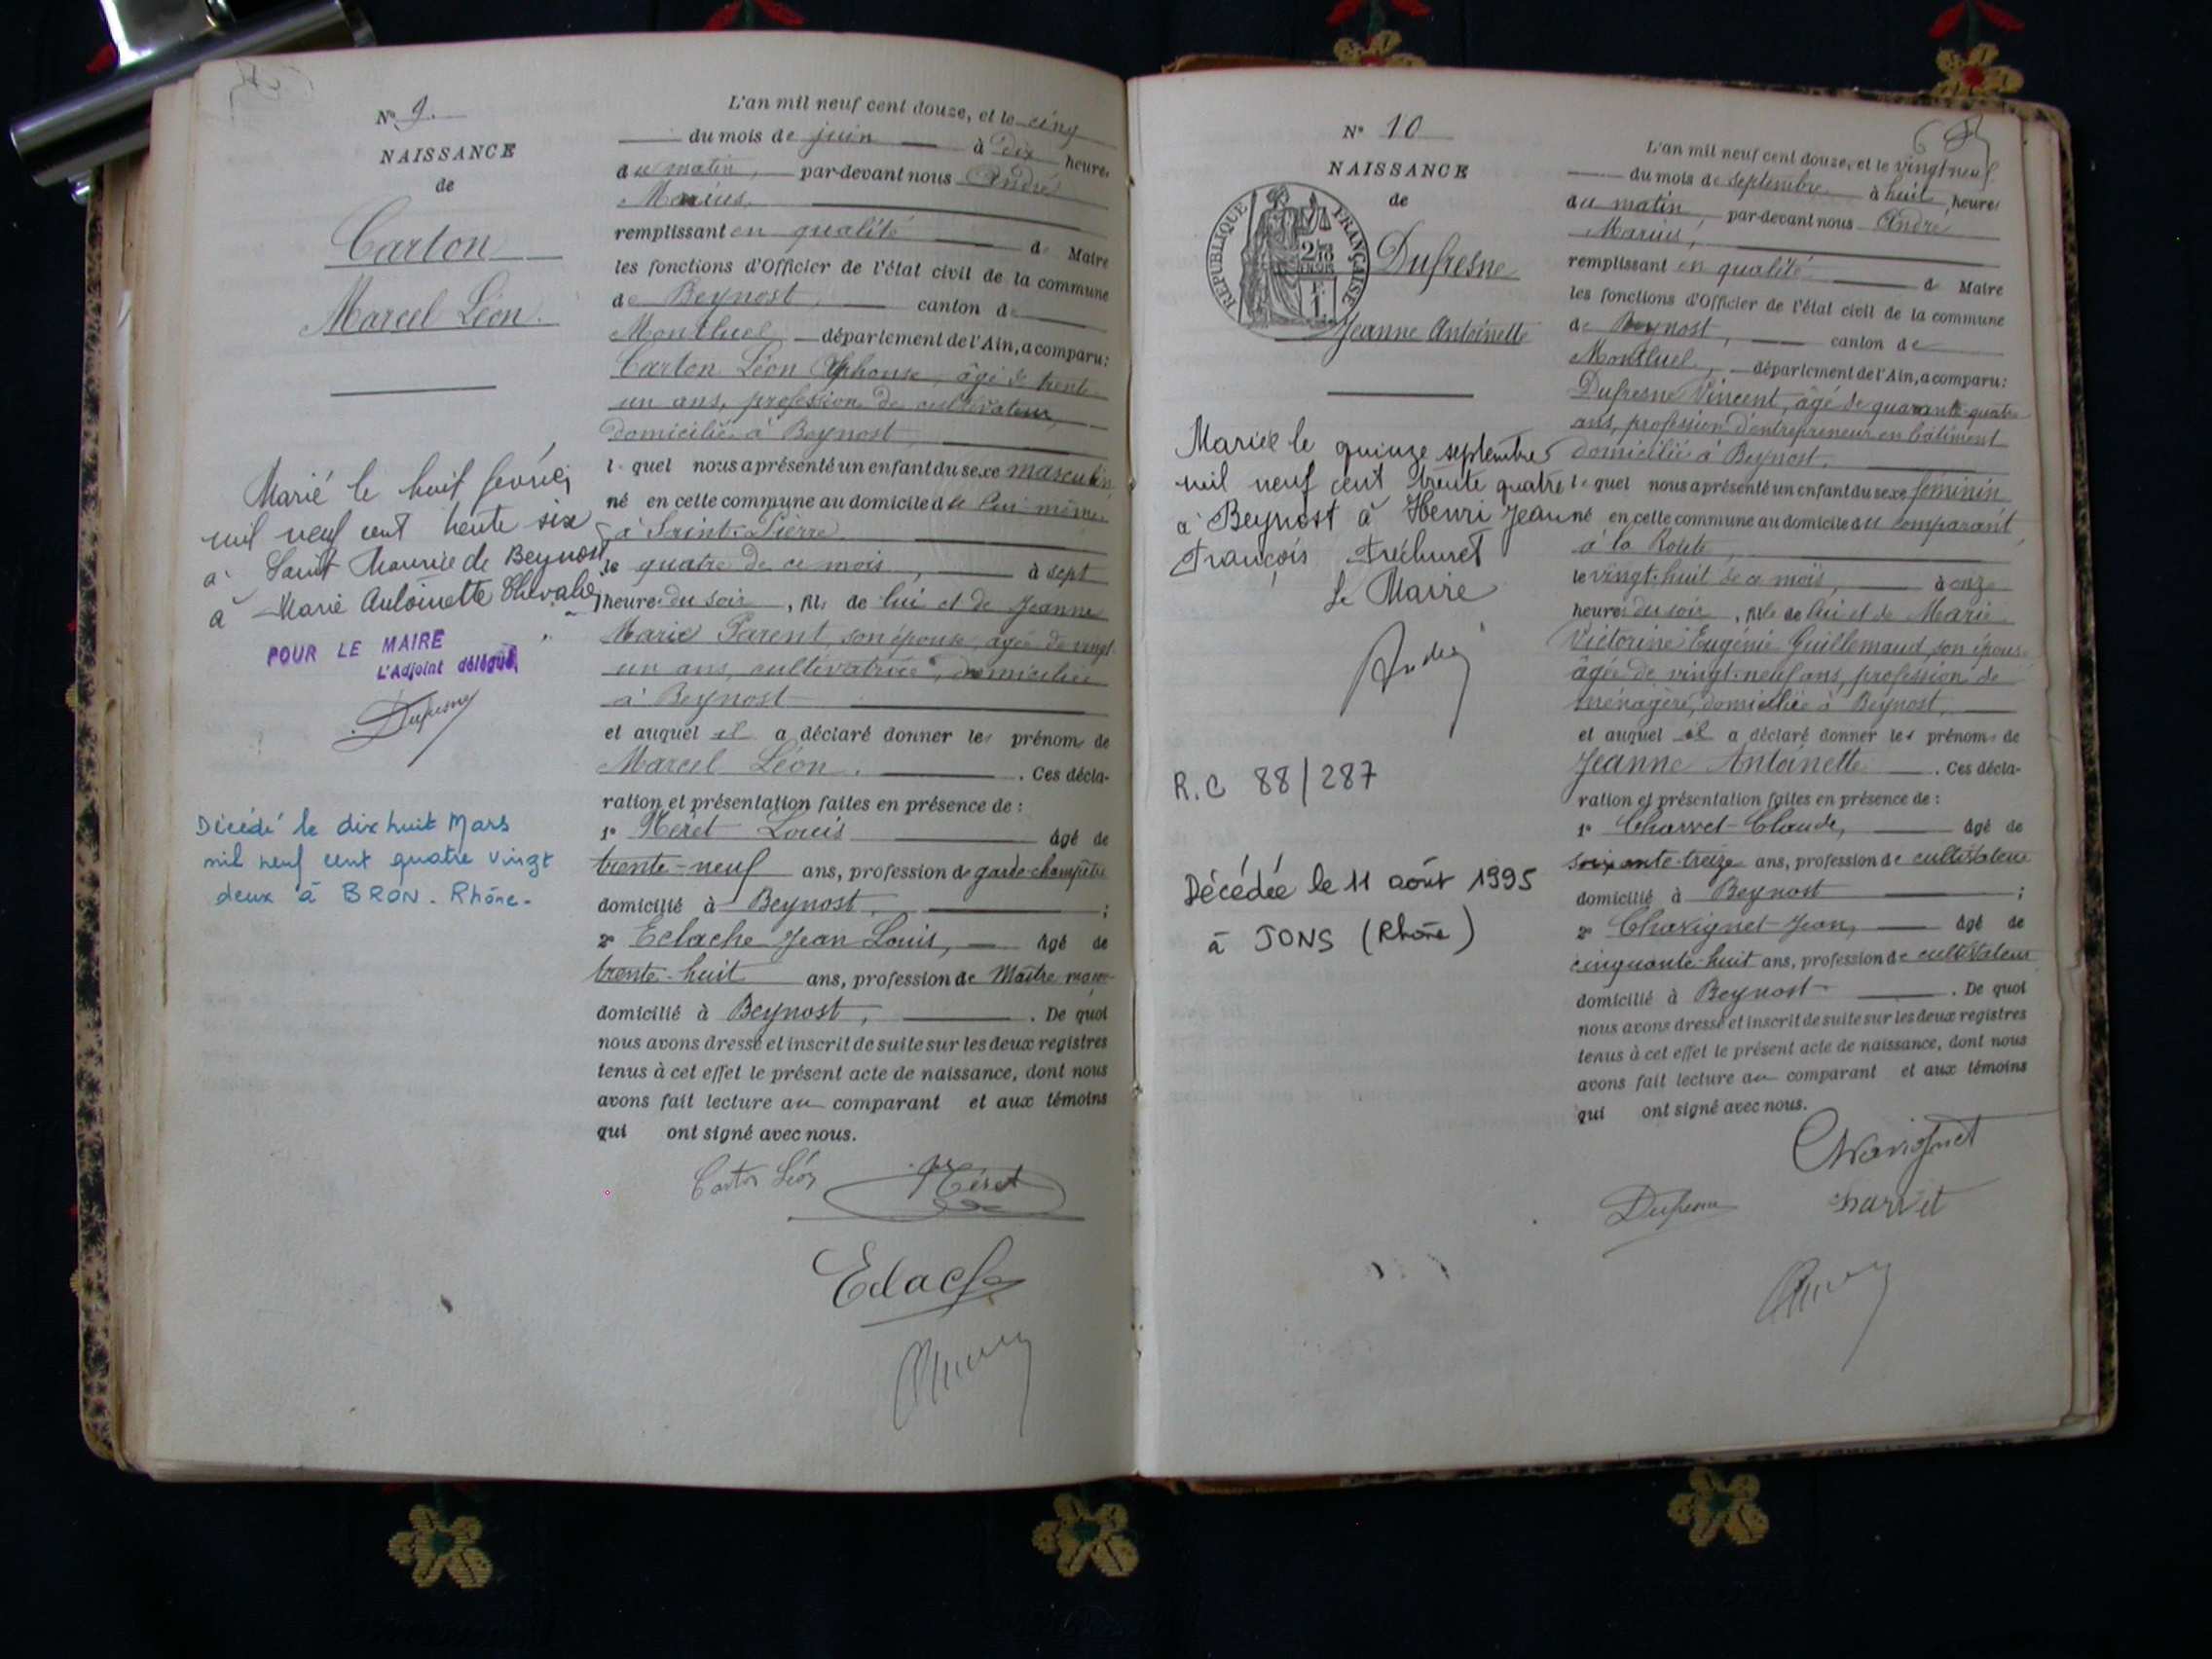 N° 9.
NAISSANCE
de
Carton
Marcel Léon.
Marié le huit février
mil neuf cent trente six
à Saint Maurice de Beynost
à Marie Antoinette Chevalier
POUR LE MAIRE
L'Adjoint délégué,
Dufresne
Décédé le dix huit Mars
mil neuf cent quatre vingt
deux à BRON. Rhône.
L'an mil neuf cent douze, et le cinq
du mois de juin à dix heures
du matin, par-devant nous André
Marius,
remplissant en qualité de Maire
les fonctions d'Officier de l'état civil de la commune
de Beynost, canton de
Montluel département de l'Ain, a comparu:
Carton Léon Alphonse, âgé de trente
un ans, profession de cultivateur,
domicilié à Beynost,
lequel nous a présenté un enfant du sexe masculin
né en cette commune au domicile de lui même,
à Saint-Pierre
le quatre de ce mois, à sept
heures du soir, fils de lui et de Jeanne
Marie Parent, son épouse, âgée de vingt
un ans, cultivatrice, domiciliée
à Beynost
et auquel il a déclaré donner les prénoms de
Marcel Léon. Ces décla-
ration et présentation faites en présence de :
1° Néret Louis âgé de
trente-neuf ans, profession de garde-champêtre
domicilié à Beynost, ;
2° Eclache Jean Louis, âgé de
trente-huit ans, profession de Maître-maçon
domicilié à Beynost, . De quoi
nous avons dressé et inscrit de suite sur les deux registres
tenus à cet effet le présent acte de naissance, dont nous
avons fait lecture au comparant et aux témoins
qui ont signé avec nous.
Carton Léon
Néret
Eclache
N° 10
NAISSANCE
de
RÉPUBLIQUE FRANÇAISE
Dufresne
Jeanne Antoinette
Mariée le quinze septembre
mil neuf cent trente quatre
à Beynost à Henri Jean
François Tréchuret
Le Maire
André
R.C 88/287
Décédée le 11 août 1995
à JONS (Rhône)
L'an mil neuf cent douze, et le vingt neuf
du mois de septembre à huit heures
du matin, par-devant nous André
Marius,
remplissant en qualité de Maire
les fonctions d'Officier de l'état civil de la commune
de Beynost, canton de
Montluel, département de l'Ain, a comparu:
Dufresne Vincent, âgé de quarante-quatre
ans, profession d'entrepreneur en bâtiment
domicilié à Beynost,
lequel nous a présenté un enfant du sexe féminin
né en cette commune au domicile du comparant,
à la Route,
le vingt-huit de ce mois, à onze
heures du soir, fille de lui et de Marie
Victorine Eugénie Guillemaud, son épouse
âgée de vingt-neuf ans, profession de
ménagère, domiciliée à Beynost,
et auquel il a déclaré donner les prénoms de
Jeanne Antoinette . Ces décla-
ration et présentation faites en présence de :
1° Charvet Claude, âgé de
soixante-treize ans, profession de cultivateur
domicilié à Beynost ;
2° Chavignet Jean, âgé de
cinquante-huit ans, profession de cultivateur
domicilié à Beynost . De quoi
nous avons dressé et inscrit de suite sur les deux registres
tenus à cet effet le présent acte de naissance, dont nous
avons fait lecture au comparant et aux témoins
qui ont signé avec nous.
Chavignet
Dufresne Charvet